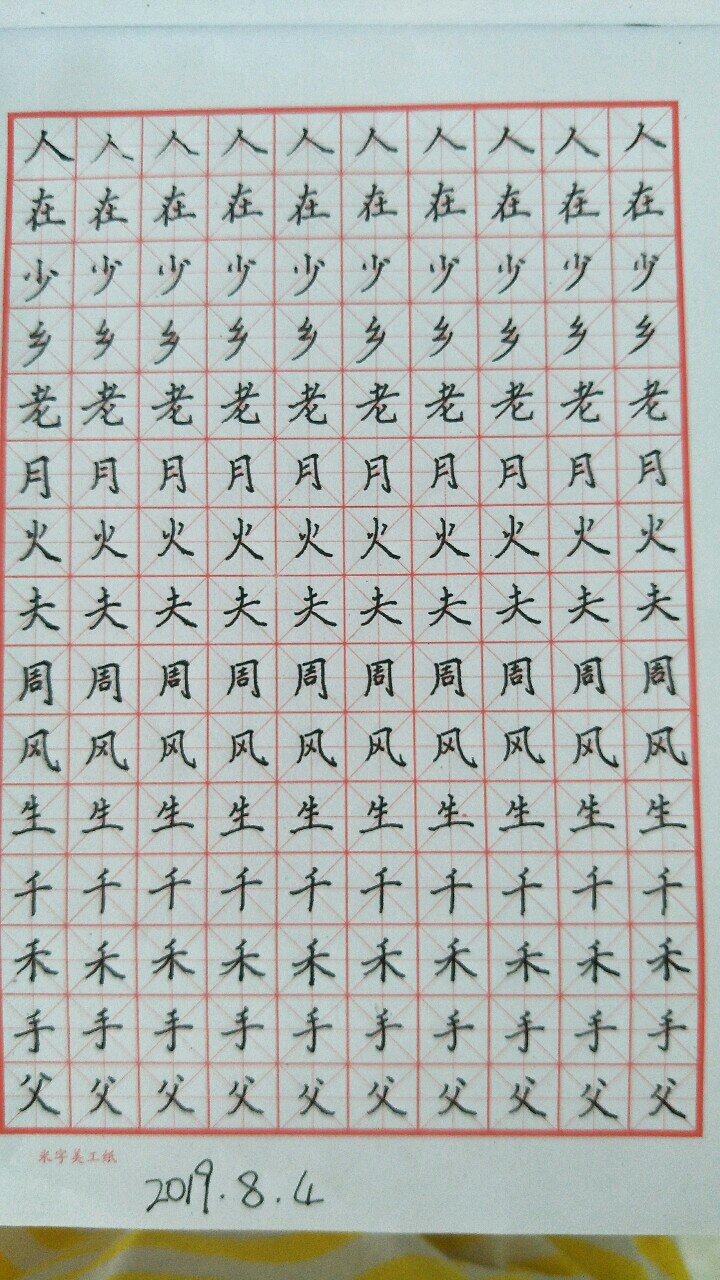 人人人人人人人人人人
在在在在在在在在在在
少少少少少少少少少少
乡乡乡乡乡乡乡乡乡乡
老老老老老老老老老老
月月月月月月月月月月
火火火火火火火火火火
夫夫夫夫夫夫夫夫夫夫
周周周周周周周周周周
风风风风风风风风风风
生生生生生生生生生生
千千千千千千千千千千
禾禾禾禾禾禾禾禾禾禾
手手手手手手手手手手
父父父父父父父父父父
米字美工纸
2019.8.4